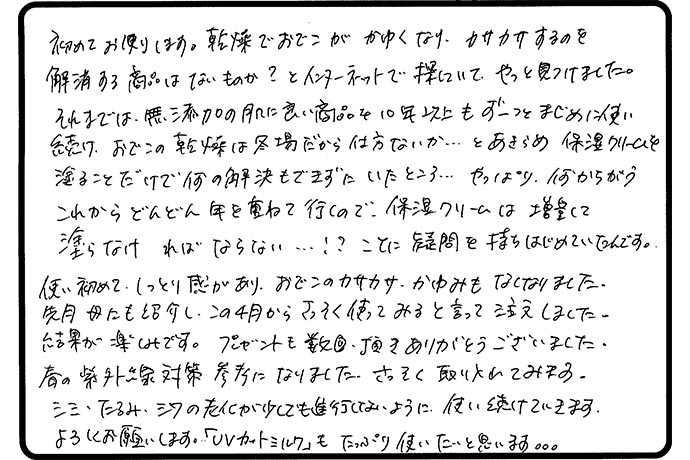 初めてお便りします。乾燥でおでこが かゆくなり、カサカサするのを
解消する商品はないものか?とインターネットで探していて、やっと見つけました。
それまでは、無添加の肌に良い商品を10年以上もずーっとまじめに使い
続け、おでこの乾燥は冬場だから仕方ないか…とあきらめ 保湿クリームを
塗ることだけで何の解決もできずにいたところ… やっぱり、何かちがう
これからどんどん年を重ねて行くので、保湿クリームは 増量して
塗らなければならない…!? ことに疑問を持ちはじめていたんです。
使い初めて、しっとり感があり、おでこのカサカサ、かゆみも なくなりました。
先月 母にも紹介し、この4月から さっそく使ってみると言って 注文しました。
結果が楽しみです。 プレゼントも数回、頂き ありがとうございました。
春の紫外線対策 参考になりました。さっそく 取り入れてみます。
シミ、たるみ、シワの老化が少しでも進行しないように、使い続けていきます。
よろしくお願いします。「UVカットミルク」も たっぷり使いたいと思います。。。